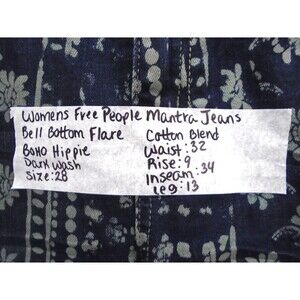 Womens Free People Mantra Jeans
Bell Bottom Flare
BoHo Hippie
Dark Wash
Size:28
Cotton Blend
Waist:32
Rise:9
Inseam:34
Leg:13